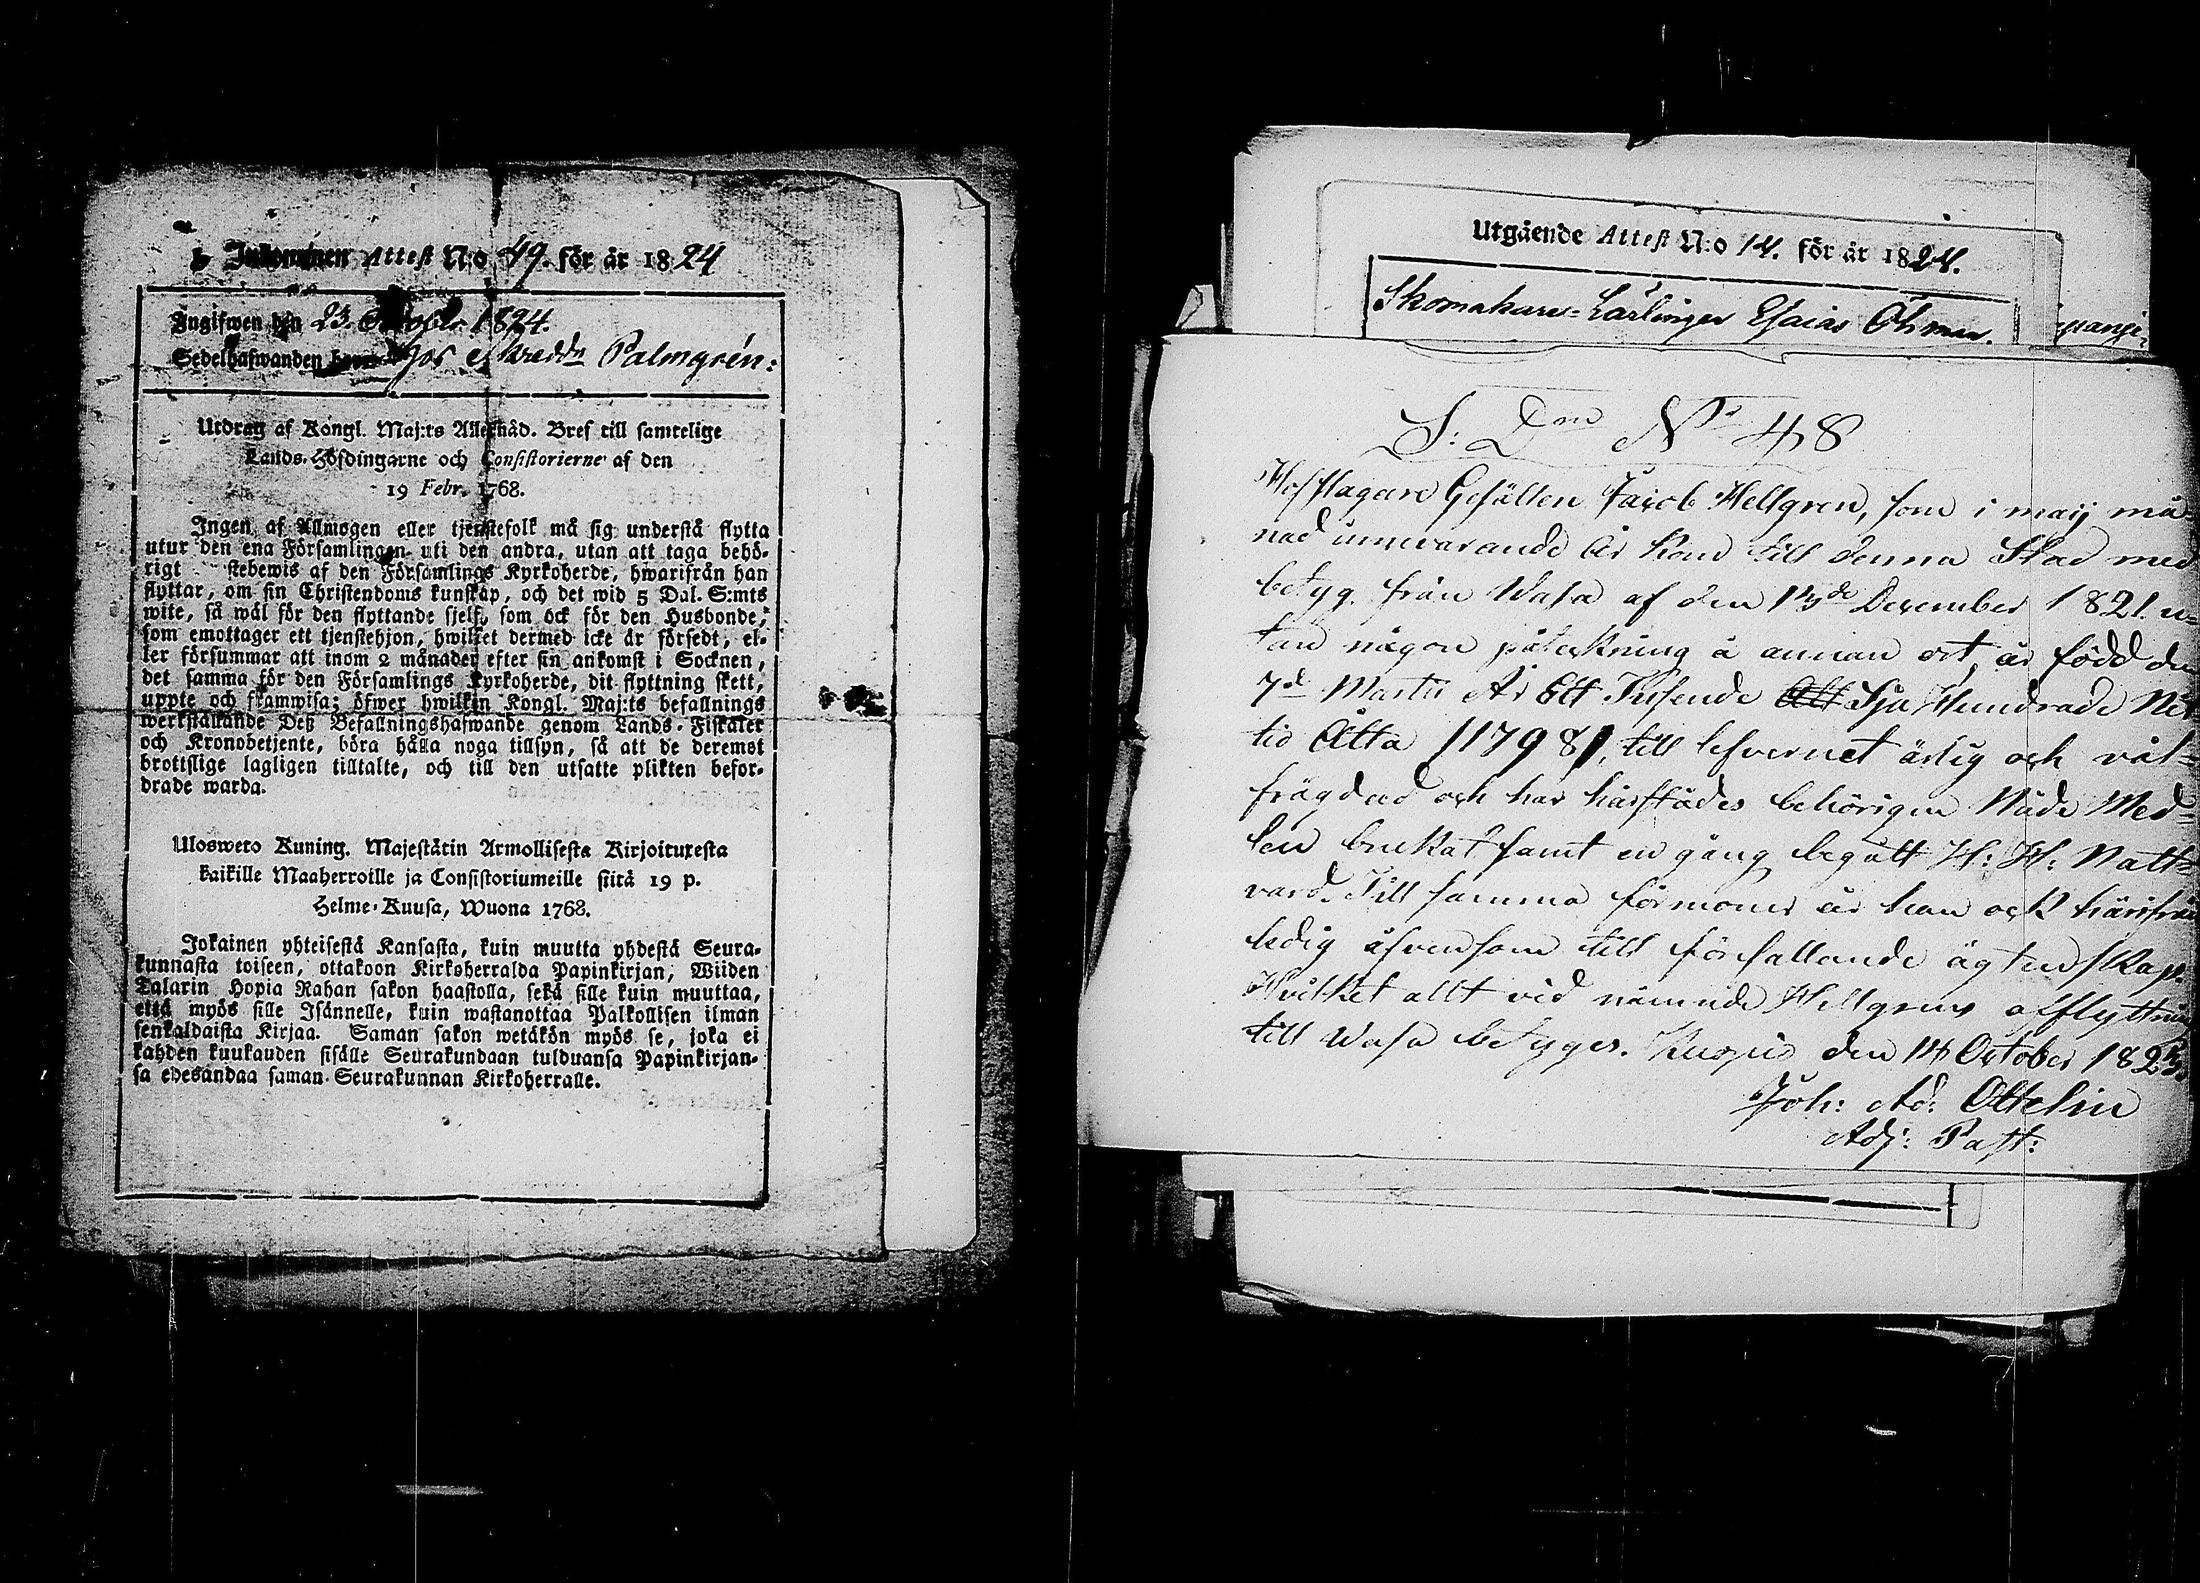 Inkommen Attest N:o 49. för år 1824
Ingifwen den 23. October 1824.
Sedelhafwanden hos Skredd Palmgrén:
Utdrag af Kongl. Maj:ts Allernåd. Bref till samtelige
Lands-Höfdingarne och Consistorierne af den
19 Febr. 1768.
Ingen af Allmogen eller tjenstefolk må sig understå flytta
utur den ena Församlingen uti den andra, utan att taga behö-
rigt stebewis af den Församlings Kyrkoherde, hwarifrån han
flyttar, om sin Christendoms kunskap, och det wid 5 Dal. S:mts
wite, så wäl för den flyttande sjelf, som öck för den Husbonde,
som emottager ett tjenstehjon, hwilket dermed icke är försedt, el-
ler försummar att inom 2 månader efter sin ankomst i Socknen,
det samma för den Församlings Kyrkoherde, dit flyttning skett,
uppte och framwisa; öfwer hwilkin Kongl. Maj:ts befallnings
werkställande Deß Befallningshafwande genom Lands-Fiskaler
och Kronobetjente, böra hålla noga tillsyn, så att de deremot
brottslige lagligen tilltalte, och till den utsatte plikten befor-
drade warda.
Uloswero Kuning. Majestätin Armollisesta Kirjoituxesta
kaikille Maaherroille ja Consistoriumeille siitä 19 p.
Helme-Kuusa, Wuona 1768.
Jokainen yhteisestä Kansasta, kuin muutta yhdestä Seura-
kunnasta toiseen, ottakoon Kirkoherralda Papinkirjan, Wiiden
Talarin Hopia Rahan sakon haastolla, sekä sille kuin muuttaa,
että myös sille Isännelle, kuin wastanottaa Palkollisen ilman
senkaldaista Kirjaa. Saman sakon wetäkön myös se, joka ei
kahden kuukauden sisälle Seurakundaan tulduansa Papinkirjan-
sa edesandaa saman Seurakunnan Kirkoherralle.
Utgående Attest N:o 14. för år 1824.
Skomakare-Lärlingen Esaias Öhman.
S: Dm No 48
Hofslagare Gesällen Jacob Hellgren, som i maij må-
nad innevarande år kom till denna Stad med
betyg från Wasa af den 13de December 1821. u-
tan någon påteckning å annan ort, är född den
7de Martii År Ett Tusende Ått Sju Hundrade Nit-
tio Åtta /1798/, till lefvernet ärlig och väl-
frägdad och har härstädes behörigen Nåde Med-
len brukat samt en gång begått H: H: Natt-
vard. Till samma förmoner är han ock härifrån
ledig äfvensom till förefallande ägtenskap.
Hvilket allt vid nämnde Hellgrens afflyttning
till Wasa betyges. Kuopio den 14 October 1823.
Joh: Ad: Ottelin
Adj: Past: